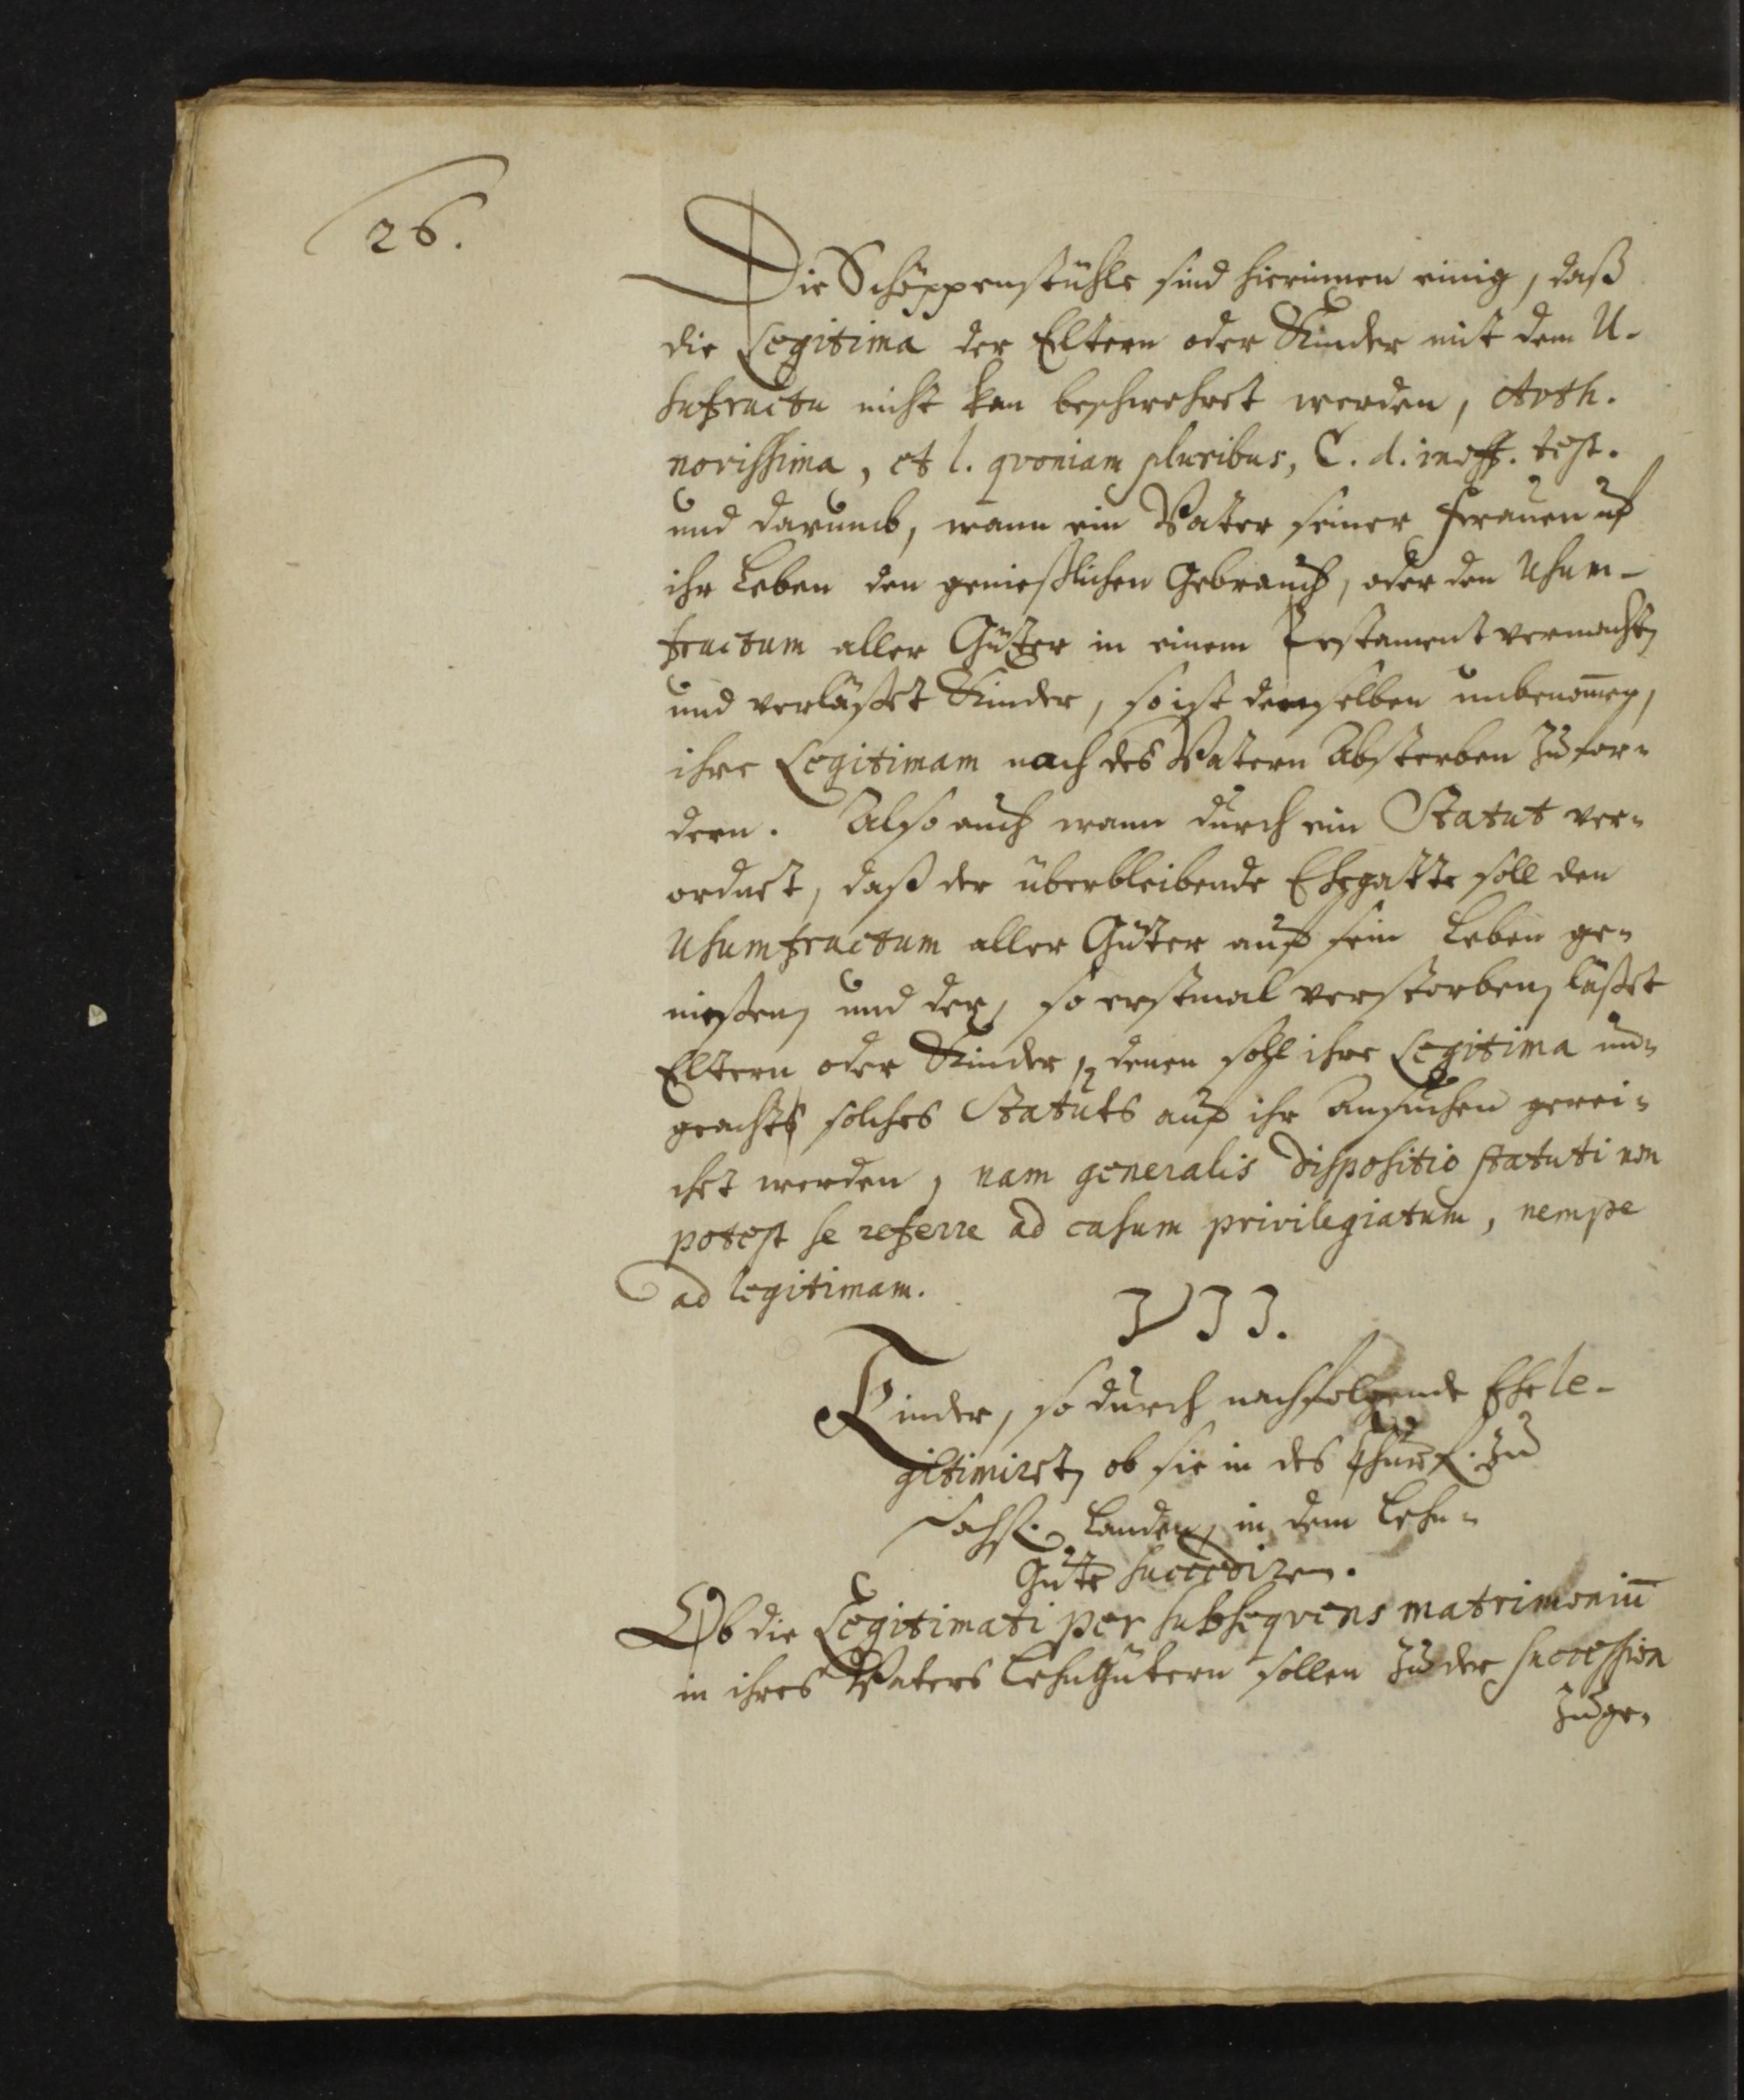 26.
Die Schöppenstühle sind hierinnen einig, daß
die Legitima der Eltern oder Kinder mit dem U-
sufructu nicht kan beschwehret werden, Avth.
novissima, et l. qvoniam pluribus, C. d. inoff. test.
und darumb, wann ein Vater seiner Frauen uf
ihr Leben den genießlichen Gebrauch, oder den Usum-
fructum aller Güter in einem Testament vermacht,
und verläßet Kinder, so ist denselben unbenom̄en,
ihre Legitimam nach des Vatern Absterben zu for-
dern. Also auch wann durch ein Statut ver-
ordnet, daß der überbleibende Ehegatte soll den
Usumfructum aller Güter auf sein Leben ge-
nießen, und der, so erstmal verstorben, läßet
Eltern oder Kinder, denen sohl ihre Legitima un-
geachts solches Statuts auf ihr Ansuchen gerei-
chet werden, nam generalis dispositio statuti non
potest se referre ad casum privilegiatum, nempe
ad legitimam.
VII.
Kinder, so durch nachfolgende Ehe le-
gitimiret, ob sie in des Churf. zu
Sachß. Landen, in dem Lehn-
Gute succediren.
Ob die Legitimati per subseqvens matrimoniū
in ihres Vaters Lehngütern sollen zu der succession
zuge-